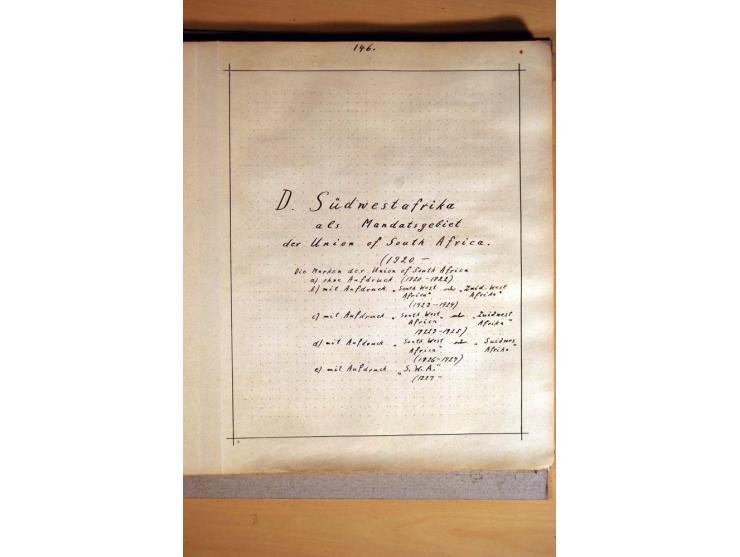 146.
D. Südwestafrika
als Mandatsgebiet
der Union of South Africa.
(1920 –
Die Marken der Union of South Africa
a) ohne Aufdruck. (1920–1922)
b) mit Aufdruck „South West Africa" od. „Zuid-West Afrika"
(1923–1924)
c) mit Aufdruck „South West Africa" od. „Zuidwest Afrika"
(1923–1925)
d) mit Aufdruck „South West Africa" od. „Suidwes Afrika"
(1926–1927)
e) mit Aufdruck „S.W.A."
(1927 –